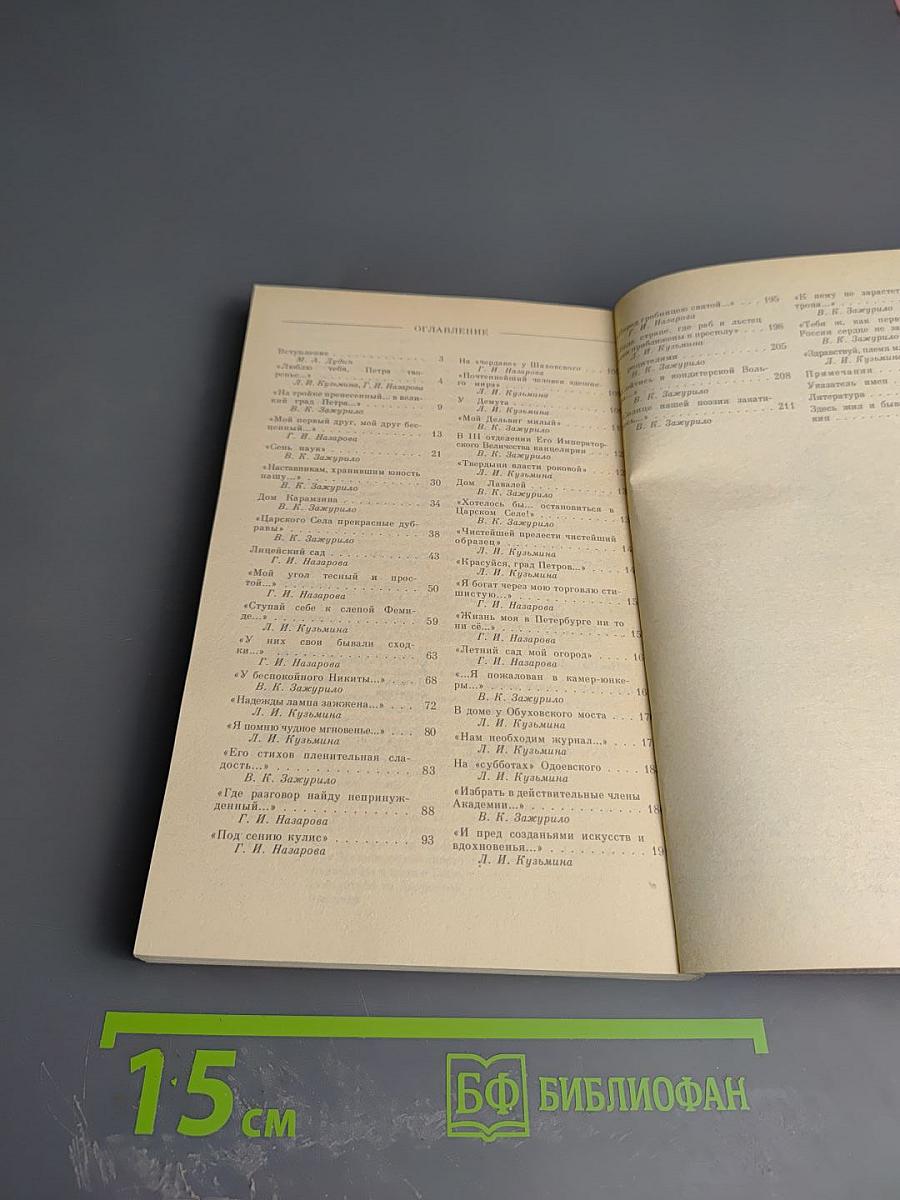 ОГЛАВЛЕНИЕ
Вступление . . . 3
М. А. Дудин
«Люблю тебя, Петра тво-
ренье...» . . . 4
Л. И. Кузьмина, Г. И. Назарова
«На тройке пренесенный... в вели-
кий град Петра...» . . . 9
В. К. Зажурило
«Мой первый друг, мой друг бес-
ценный...» . . . 13
Г. И. Назарова
«Сень наук» . . . 21
В. К. Зажурило
«Наставникам, хранившим юность
нашу...» . . . 30
В. К. Зажурило
Дом Карамзина . . . 34
В. К. Зажурило
«Царского Села прекрасные дуб-
равы» . . . 38
В. К. Зажурило
Лицейский сад . . . 43
Г. И. Назарова
«Мой угол тесный и прос-
той...» . . . 50
Г. И. Назарова
«Ступай себе к слепой Феми-
де...» . . . 59
Л. И. Кузьмина
«У них свои бывали сход-
ки...» . . . 63
Г. И. Назарова
«У беспокойного Никиты...» . . . 68
В. К. Зажурило
«Надежды лампа зажжена...» . . . 72
Л. И. Кузьмина
«Я помню чудное мгновенье...» . . . 80
Л. И. Кузьмина
«Его стихов пленительная сла-
дость...» . . . 83
В. К. Зажурило
«Где разговор найду непринуж-
денный...» . . . 88
Г. И. Назарова
«Под сению кулис» . . . 93
Г. И. Назарова
На «чердаке» у Шаховского . . .
Г. И. Назарова
«Почтеннейший человек здешне-
го мира» . . .
Л. И. Кузьмина
У Демута . . .
Л. И. Кузьмина
«Мой Дельвиг милый» . . .
В. К. Зажурило
В III отделении Его Император-
ского Величества канцелярии . . .
В. К. Зажурило
«Твердыня власти роковой» . . .
Л. И. Кузьмина
Дом Лавалей . . .
В. К. Зажурило
«Хотелось бы... остановиться в
Царском Селе!» . . .
В. К. Зажурило
«Чистейшей прелести чистейший
образец» . . .
Л. И. Кузьмина
«Красуйся, град Петров...» . . .
Л. И. Кузьмина
«Я богат через мою торговлю сти-
шистую...» . . .
Г. И. Назарова
«Жизнь моя в Петербурге ни то
ни сё...» . . .
Г. И. Назарова
«Летний сад мой огород» . . .
Г. И. Назарова
«...Я пожалован в камер-юнке-
ры...» . . .
В. К. Зажурило
В доме у Обуховского моста . . .
Л. И. Кузьмина
«Нам необходим журнал...» . . .
Л. И. Кузьмина
На «субботах» Одоевского . . .
Л. И. Кузьмина
«Избрать в действительные члены
Академии...» . . .
В. К. Зажурило
«И пред созданьями искусств и
вдохновенья...» . . .
Л. И. Кузьмина
гробницею святой...» . . . 195
Г. И. Назарова
стране, где раб и льстец
приближены к престолу» . . . 198
Л. И. Кузьмина
205
В. К. Зажурило
кондитерской Воль-
208
В. К. Зажурило
нашей поэзии закати-
211
В. К. Зажурило
«К нему не зарастет
тропа...»
В. К. Зажурило
«Тебя ж, как перв
России сердце не за
В. К. Зажурило
«Здравствуй, племя м
Л. И. Кузьмина
Примечания
Указатель имен
Литература
Здесь жил и быв
ния
15 см
БФ БИБЛИОФАН